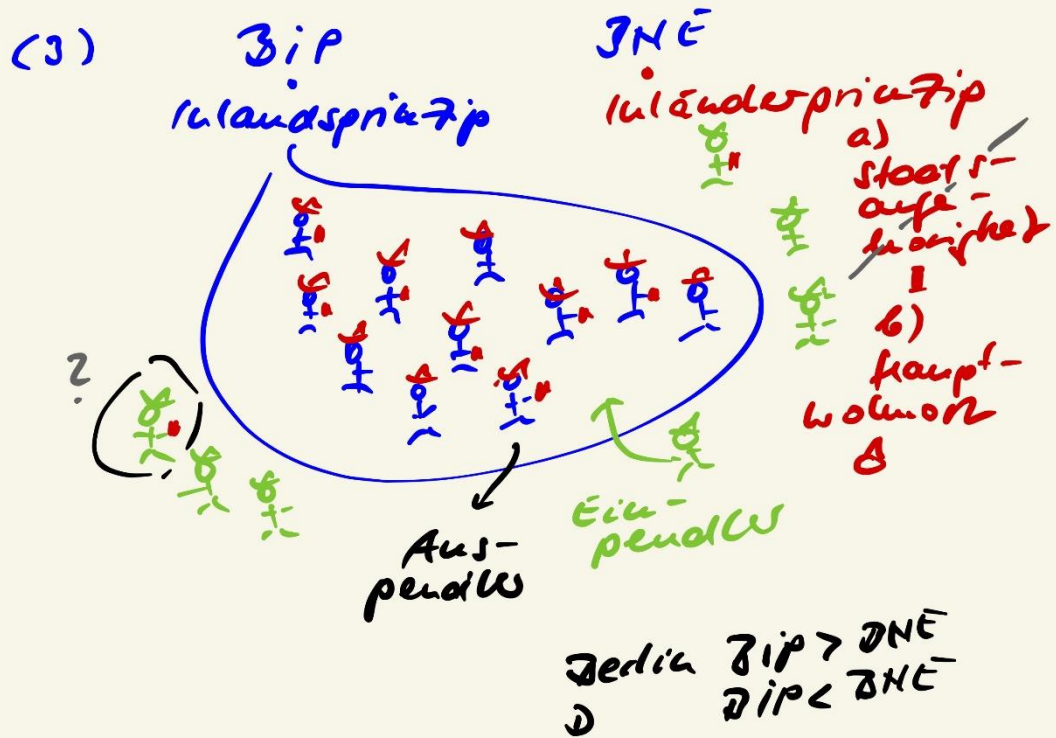 (3)
BiP
BNE
Inlandsprinzip
Inländerprinzip
a)
staats-
ange-
hörigkeit
b)
Haupt-
wohnort
?
Aus-
pendler
Ein-
pendler
Berlin BiP > BNE
D BiP < BNE